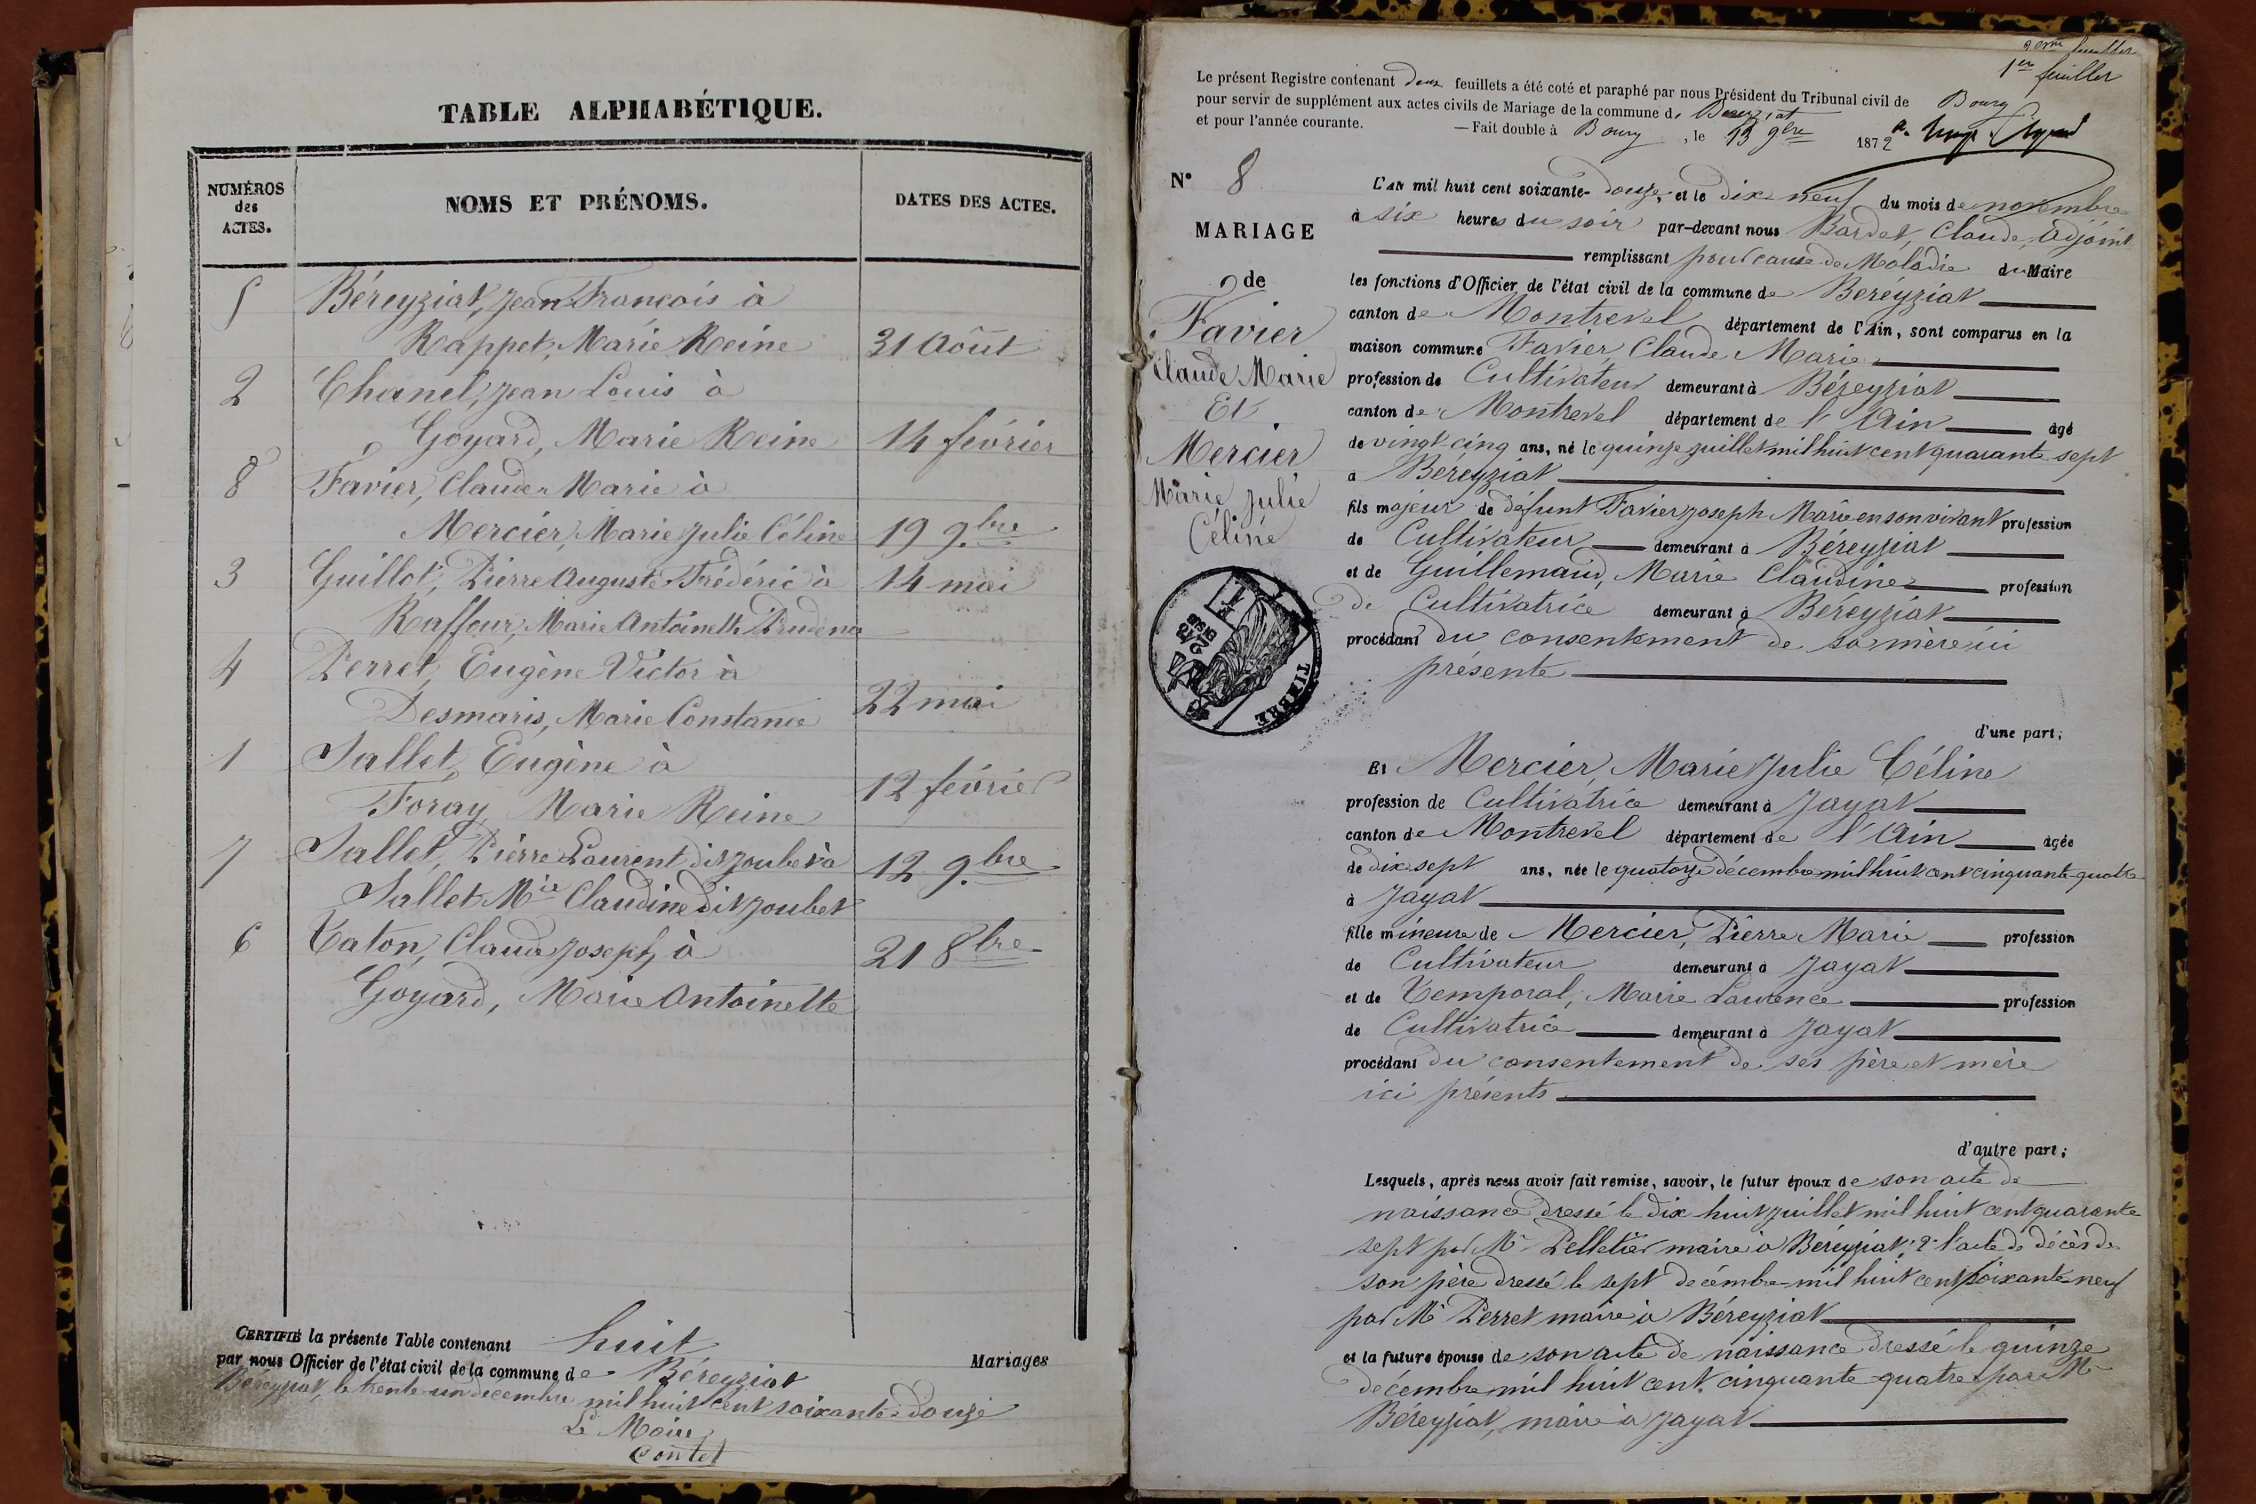 TABLE ALPHABÉTIQUE.
NUMÉROS des ACTES.
NOMS ET PRÉNOMS.
DATES DES ACTES.
5 Béreyziat, Jean François à
Rappet, Marie Reine 31 Août
2 Chanel, Jean Louis à
Goyard, Marie Reine 14 février
8 Favier, Claude Marie à
Mercier, Marie Julie Céline 19 9.bre
3 Guillot, Pierre Auguste Frédéric à 14 mai
Raffour, Marie Antoinette Prudence
4 Perret, Eugène Victor à
Desmaris, Marie Constance 22 mai
1 Sallet, Eugène à
Foray, Marie Reine 12 février
7 Sallet, Pierre Laurent dit Joubet à 12 9.bre
Sallet Mie Claudine dit Joubet
6 Caton, Claude Joseph, à 21 8bre
Goyard, Marie Antoinette
CERTIFIÉ la présente Table contenant huit Mariages
par nous Officier de l'état civil de la commune de Béreyziat
Béreyziat, le trente-un décembre mil huit cent soixante-douze
Le Maire
Contet
1er feuillet
Le présent Registre contenant deux feuillets a été coté et paraphé par nous Président du Tribunal civil de Bourg
pour servir de supplément aux actes civils de Mariage de la commune de Béreyziat
et pour l'année courante. — Fait double à Bourg, le 13 9bre 1872
N° 8
MARIAGE
de
Favier
Claude Marie
Et
Mercier
Marie Julie
Céline
TIMBRE
L'AN mil huit cent soixante-douze, et le dix neuf du mois de novembre
à six heures du soir par-devant nous Bardet, Claude, adjoint
remplissant pour cause de Maladie du Maire
les fonctions d'Officier de l'état civil de la commune de Béreyziat
canton de Montrevel département de l'Ain, sont comparus en la
maison commune Favier, Claude Marie
profession de Cultivateur demeurant à Béreyziat
canton de Montrevel département de l'Ain âgé
de vingt-cinq ans, né le quinze juillet mil huit cent quarante sept
à Béreyziat
fils majeur de défunt Favier Joseph Marie en son vivant profession
de Cultivateur demeurant à Béreyziat
et de Guillemaud, Marie Claudine profession
de Cultivatrice demeurant à Béreyziat
procédant du consentement de sa mère ici
présente
d'une part;
Et Mercier, Marie Julie Céline
profession de Cultivatrice demeurant à Jayat
canton de Montrevel département de l'Ain âgée
de dix sept ans, née le quatorze décembre mil huit cent cinquante-quatre
à Jayat
fille mineure de Mercier, Pierre Marie profession
de Cultivateur demeurant à Jayat
et de Temporal, Marie Laurence profession
de Cultivatrice demeurant à Jayat
procédant du consentement de ses père et mère
ici présents
d'autre part;
Lesquels, après nous avoir fait remise, savoir, le futur époux de son acte de
naissance dressé le dix huit juillet mil huit cent quarante
sept par Mr Pelletier maire à Béreyziat; 2° l'acte de décès de
son père dressé le sept décembre mil huit cent soixante-neuf
par Mr Perret maire à Béreyziat
et la future épouse de son acte de naissance dressé le quinze
décembre mil huit cent cinquante-quatre par Mr
Béreyziat, maire à Jayat